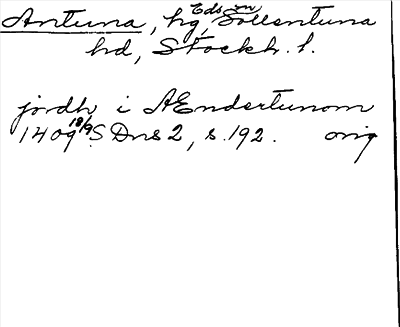 Antuna, hg, Eds sn Sollentuna
hd, Stockh. l.
jordh i AEndertunom
1409 18/9 S Dns 2, s. 192. orig